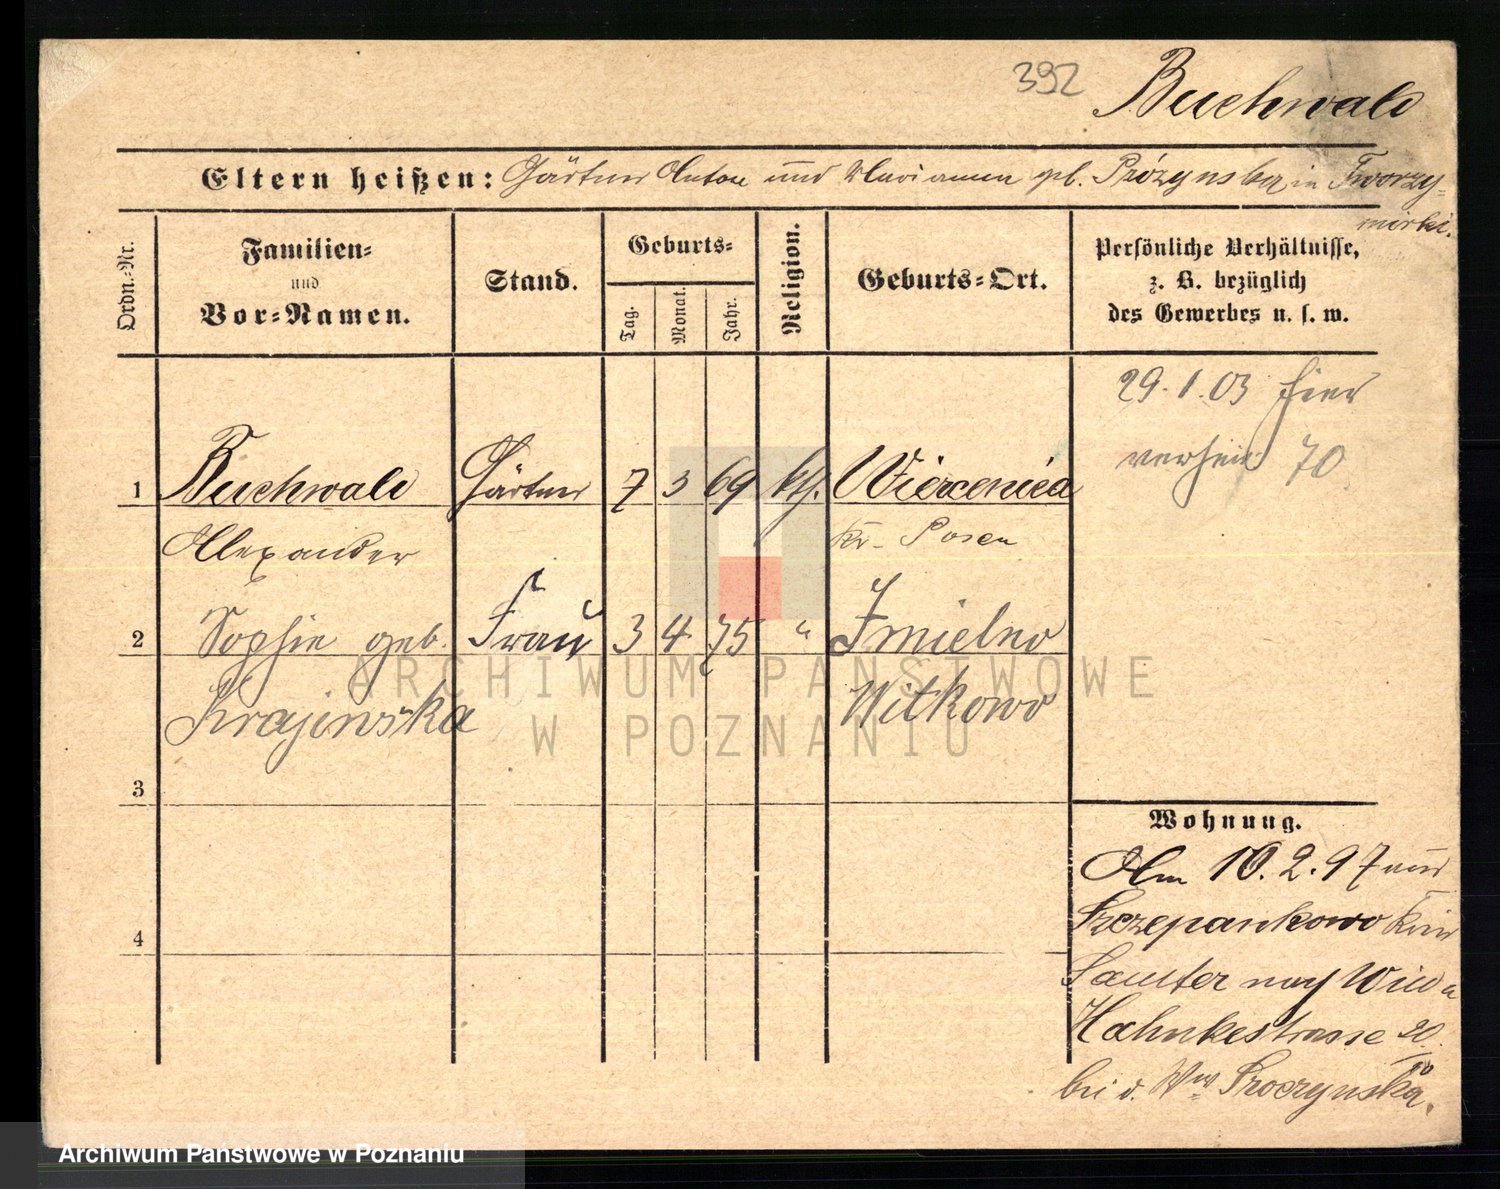 392
Buchwald
Eltern heißen: Gärtner Anton und Marianna geb. Prózynska in Tworzy=
mirki.
Ordn.=Nr.
Familien=
und
Vor=Namen.
Stand.
Geburts=
Tag.
Monat.
Jahr.
Religion.
Geburts=Ort.
Persönliche Verhältnisse,
z. B. bezüglich
des Gewerbes u. s. w.
29. 1. 03 hier
verheir 70
1 Buchwald Gärtner 7 3 69 kth. Wierzenica
Alexander Kr. Posen
2 Sophie geb. Frau 3 4 75 " Imielno
Krajinska Witkowo
3
4
Wohnung.
Am 10.2.97 aus
Szczepankowo Kreis
Samter nach Wilda
Hahnkestrasse 20
bei d. Ww
ARCHIWUM PAŃSTWOWE
W POZNANIU
Archiwum Państwowe w Poznaniu